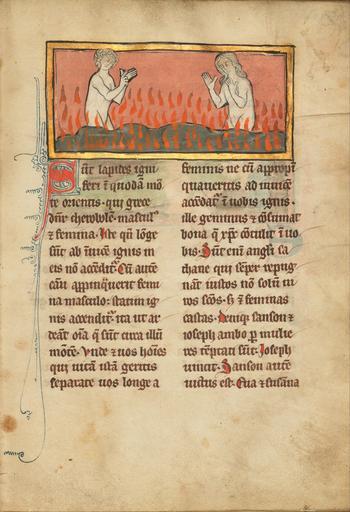 Sūt lapides igni
feri ī quodā mō
te orientis. qui grece
dnr̄ chirobole. masculꝰ
⁊ femina. Iste qn̄ lōge
sūt ab īuicē ignis in
eis nō accēdit. Cū autē
casu appinq̄uerit femi
na masculo: statim ig
nis accendit᷑ ita ut ar
deāt oīa q̄ sūt circa illū
mōtē. Unde ⁊ uos hōīes
qui uitā istā geritis
separate uos longe a
feminis ne cū appropī
quaueritis ad inuicē
accēdat᷑ ī uobis ignis.
ille geminus ⁊ cōsumat
bona q̄ xp̄c cōtulit ī uo
bis. Sūt enī angl̄i sa
thane qui sēper repug
nāt iustos nō solū ui
ros sc̄os. s; ⁊ feminas
castas. Deniq; sanson ⁊
ioseph ambo p̱ mulie
res tēptati sūt. Ioseph
uincit. Sanson autē
uictus est. Eua ⁊ susāna